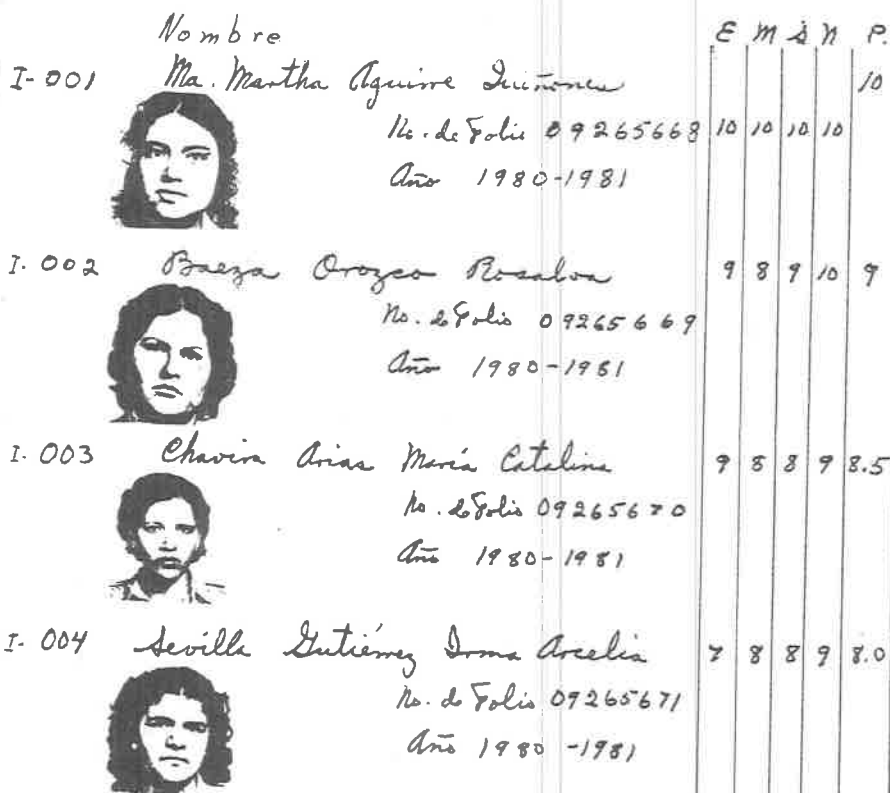 Nombre E M S N P.
I-001 Ma. Martha Aguirre Quiñones 10
No. de Folio 09265668 10 10 10 10
Año 1980-1981
I-002 Baeza Orozco Rosalva 9 8 9 10 9
No. de Folio 09265669
Año 1980-1981
I-003 Chavira Arias María Catalina 9 8 8 9 8.5
No. de Folio 09265670
Año 1980-1981
I-004 Sevilla Gutiérrez Irma Arcelia 7 8 8 9 8.0
No. de Folio 09265671
Año 1980-1981